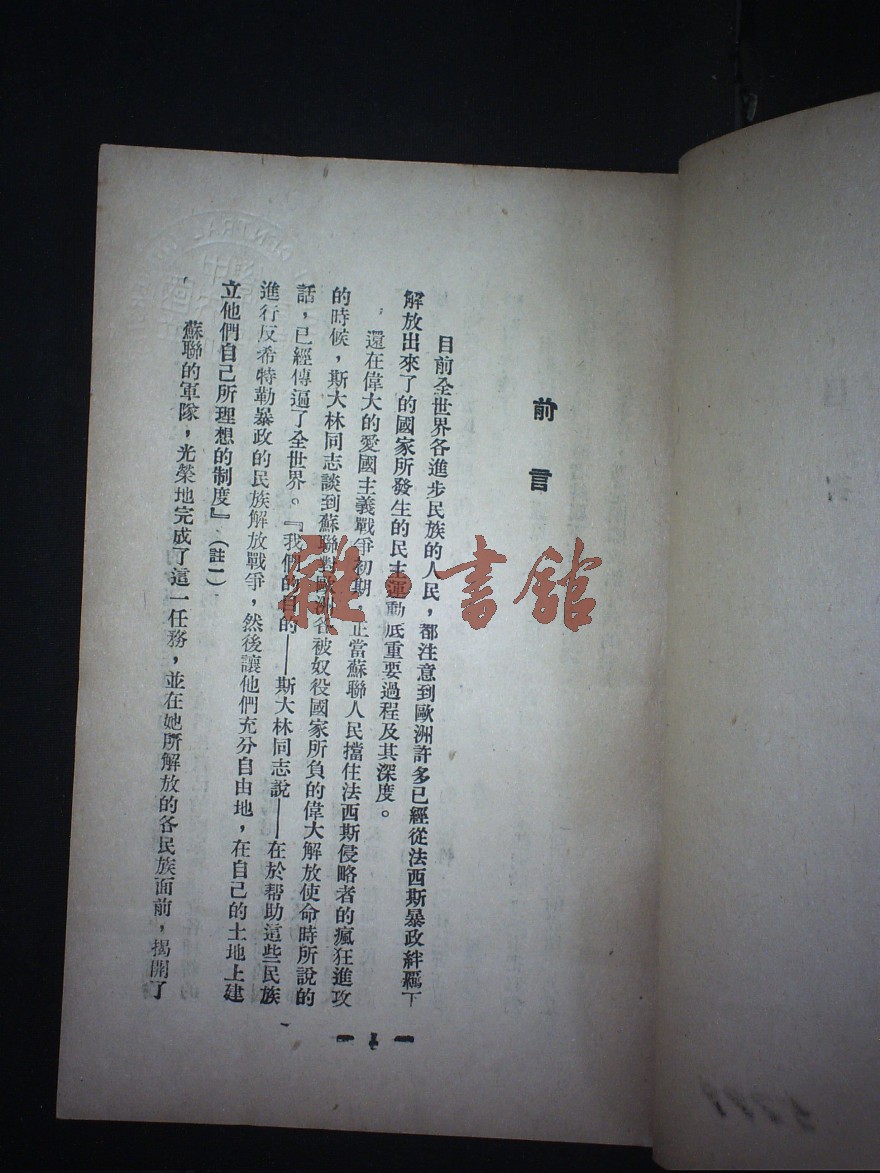 前言
目前全世界各進步民族的人民，都注意到歐洲許多已經從法西斯暴政絆羈下
解放出來了的國家所發生的民主運動底重要過程及其深度。
，還在偉大的愛國主義戰爭初期，正當蘇聯人民擋住法西斯侵略者的瘋狂進攻
的時候，斯大林同志談到蘇聯對歐洲各被奴役國家所負的偉大解放使命時所說的
話，已經傳遍了全世界。『我們的目的——斯大林同志說——在於帮助這些民族
進行反希特勒暴政的民族解放戰爭，然後讓他們充分自由地，在自己的土地上建
立他們自己所理想的制度』（註一）
蘇聯的軍隊，光榮地完成了這一任務，並在她所解放的各民族面前，揭開了
雜·書館
CENTRAL